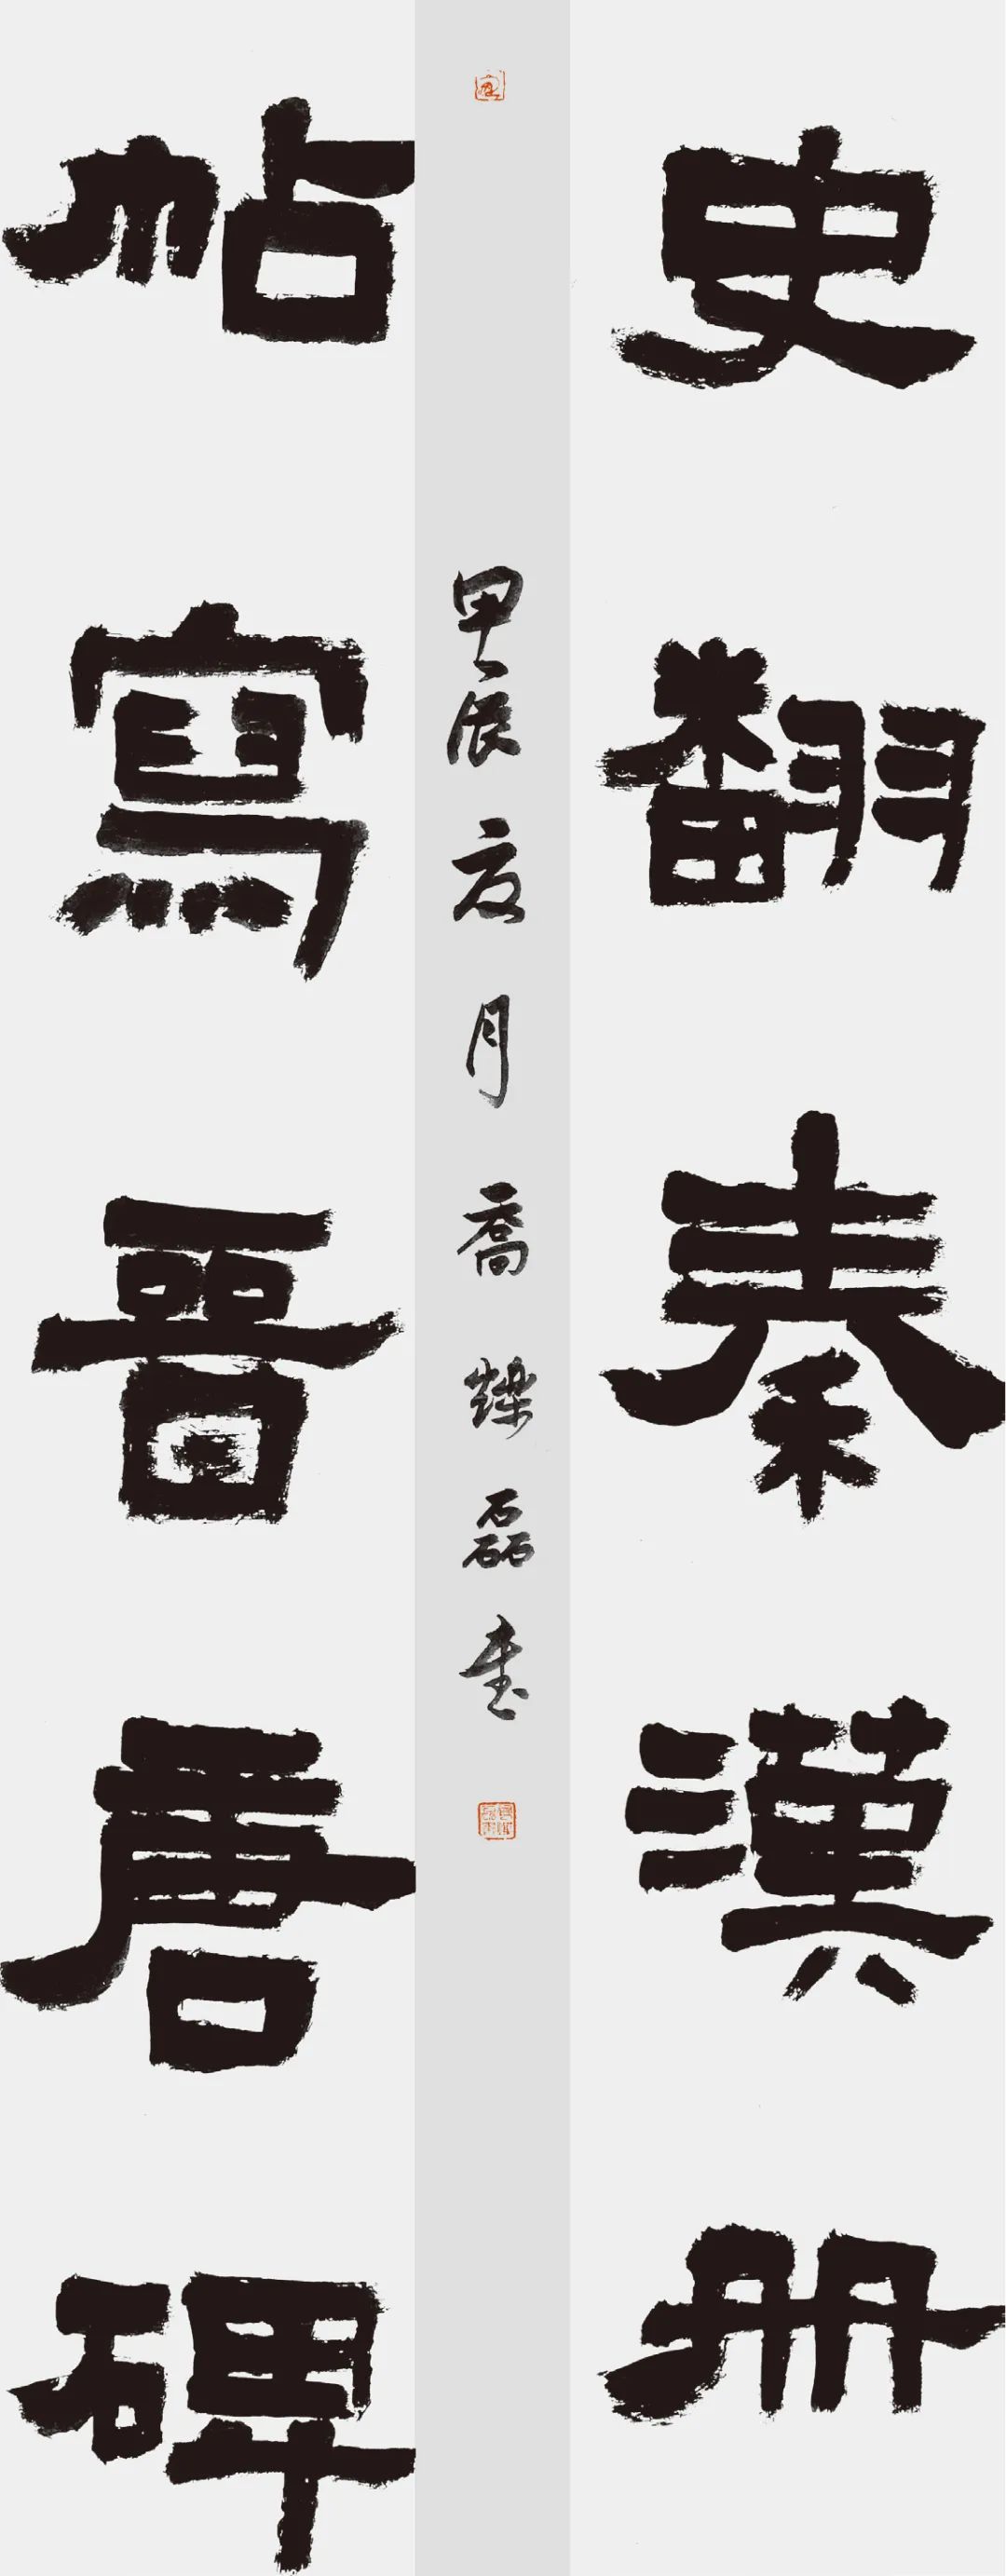 史翻秦漢册
帖寫晋唐碑
甲辰夏月喬燦磊書